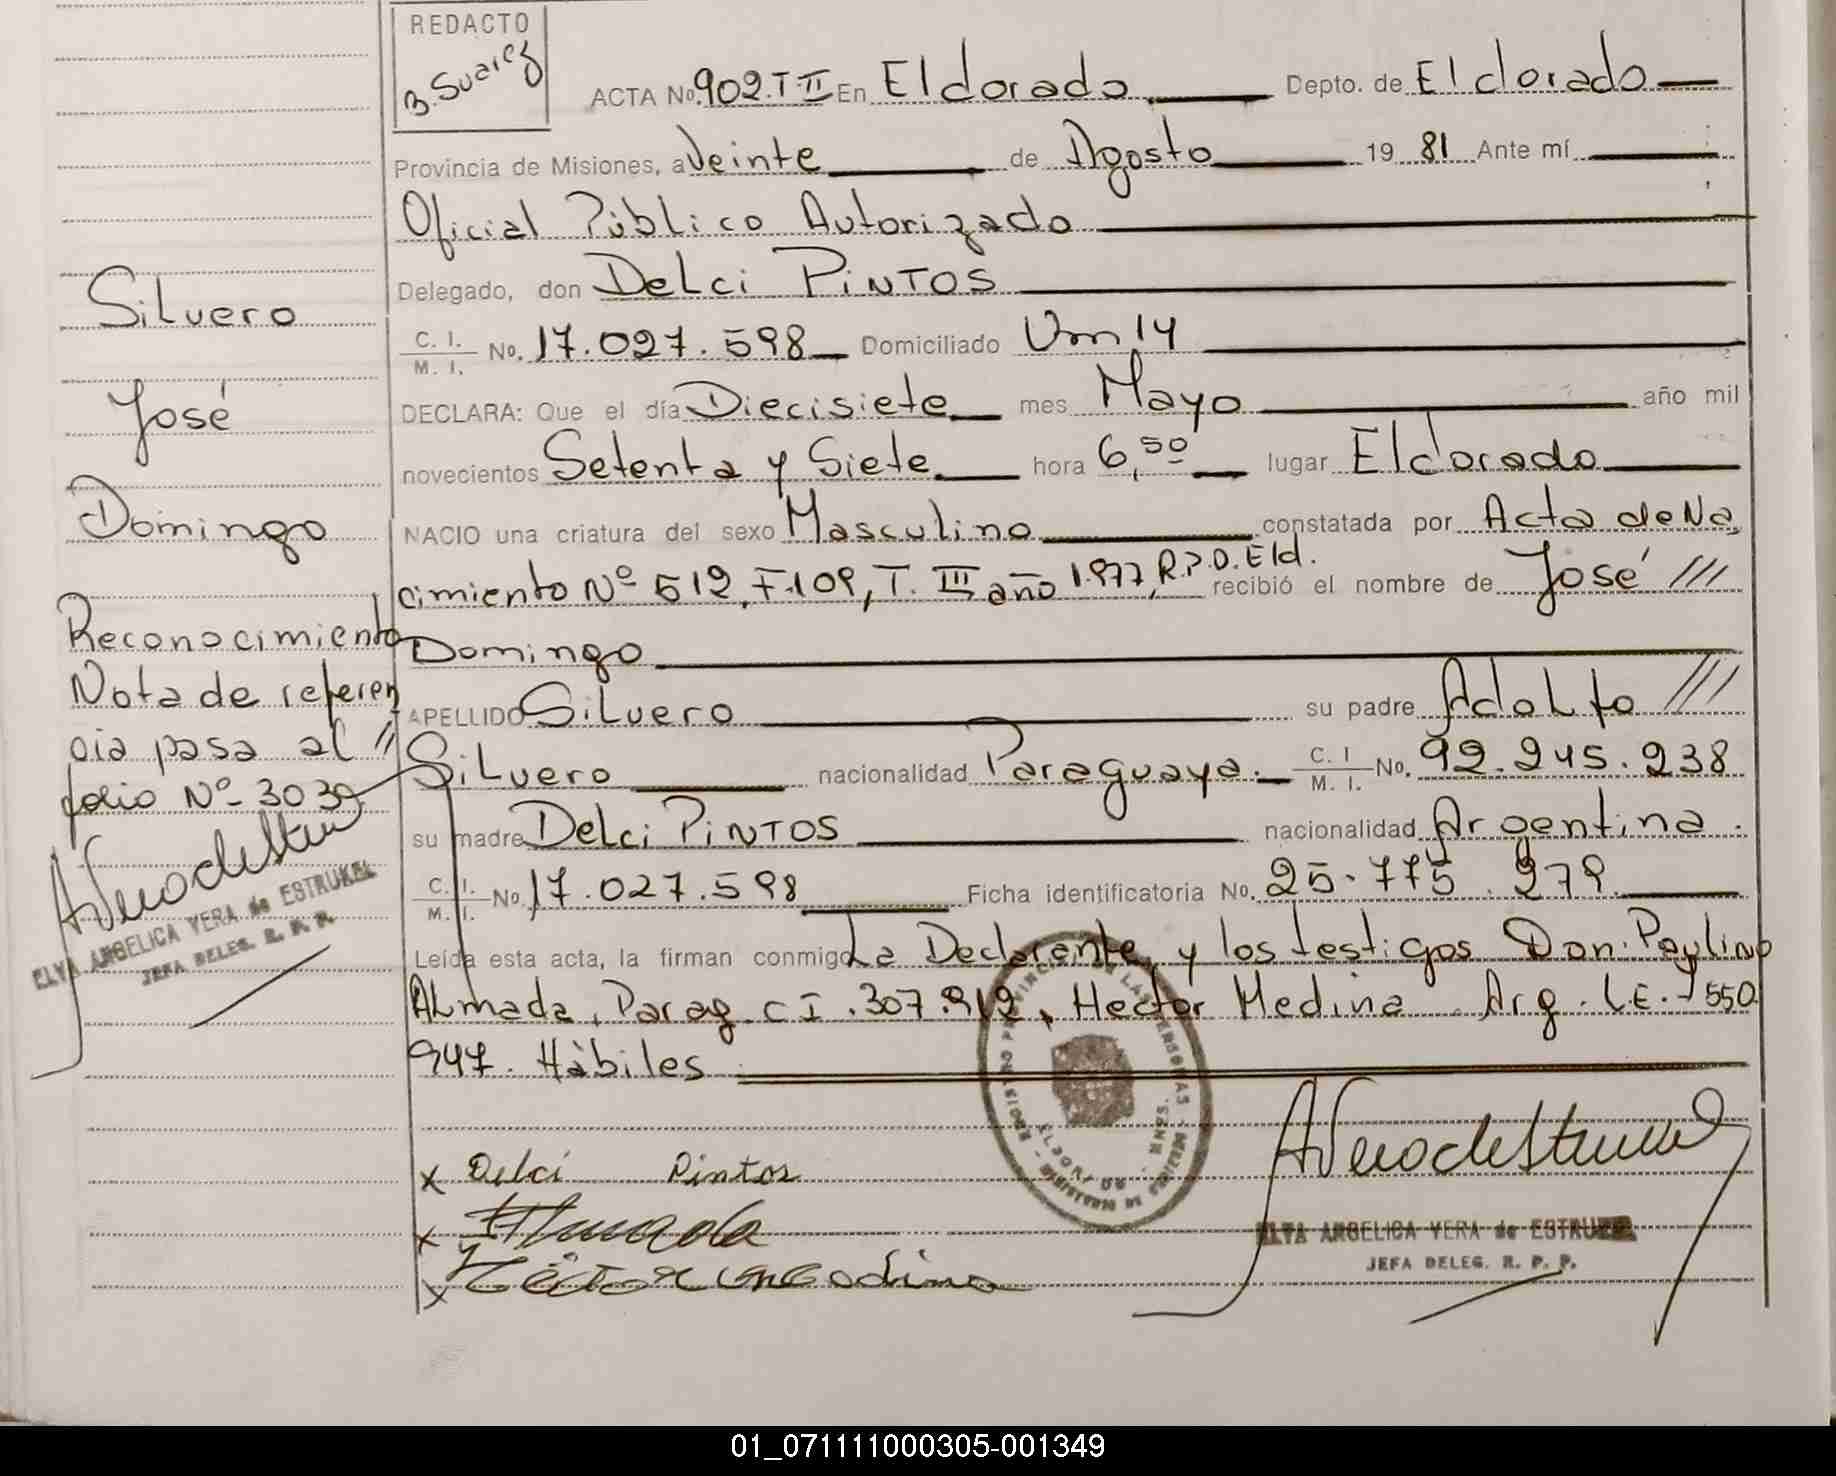 REDACTO
B. Suarez
ACTA No. 902. T II En Eldorado Depto. de Eldorado
Provincia de Misiones, a Veinte de Agosto 19 81 Ante mí
Oficial Público Autorizado
Delegado, don Delci PINTOS
C. I. / M. I. No. 17.027.598 Domiciliado Km 14
DECLARA: Que el día Diecisiete mes Mayo año mil
novecientos Setenta y Siete hora 6,50 lugar Eldorado
NACIO una criatura del sexo Masculino constatada por Acta de Na
cimiento Nº 512, F. 109, T. III año 1.977, R.P.D. Eld. recibió el nombre de José ///
Domingo
APELLIDO Silvero su padre Adolfo ///
Silvero nacionalidad Paraguaya. C. I / M. I. No. 92.245.238
su madre Delci PINTOS nacionalidad Argentina.
C. I. / M. I. No. 17.027.598 Ficha identificatoria No. 25.775.279
Leída esta acta, la firman conmigo La Declarante, y los testigos Don: Paulino
Almada, Parag. C I. 307.912, Hector Medina. Arg. L.E. 7550
947. Hàbiles
Silvero
José
Domingo
Reconocimiento
Nota de referen
cia pasa al //
folio Nº 3039
ELVA ANGELICA VERA de ESTRUKEL
JEFA DELEG. R. P. P.
x Delci Pintos
x Almada
x Hector Medina
ELVA ANGELICA VERA de ESTRUKEL
JEFA DELEG. R. P. P.
01_071111000305-001349